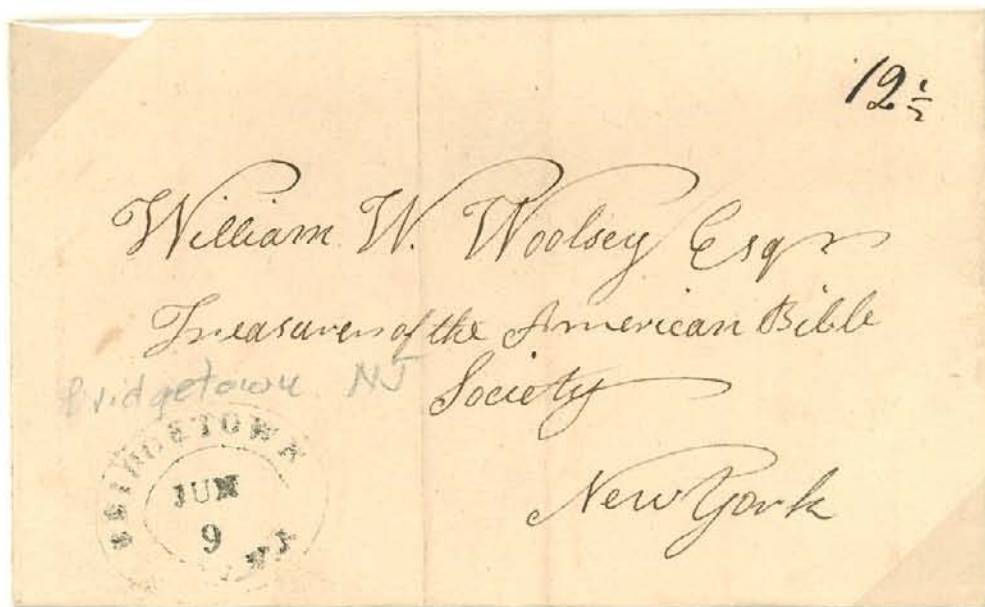 12 1/2
William W. Woolsey Esqr
Treasurer of the American Bible
Society
New York
Bridgetown NJ
BRIDGETOWN
JUN
9
NJ